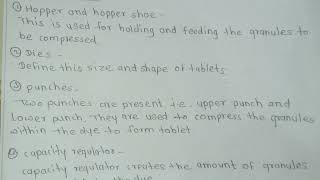 ① Hopper and hopper shoe -
This is used for holding and feeding the granules to
be compressed.
② Dies -
Define this size and shape of tablets
③ punches -
Two punches are present, i.e. upper punch and
lower punch, They are used to compress the granules
within the dye to form tablet
④ capacity regulator -
capacity regulator creates the amount of granules
the dye